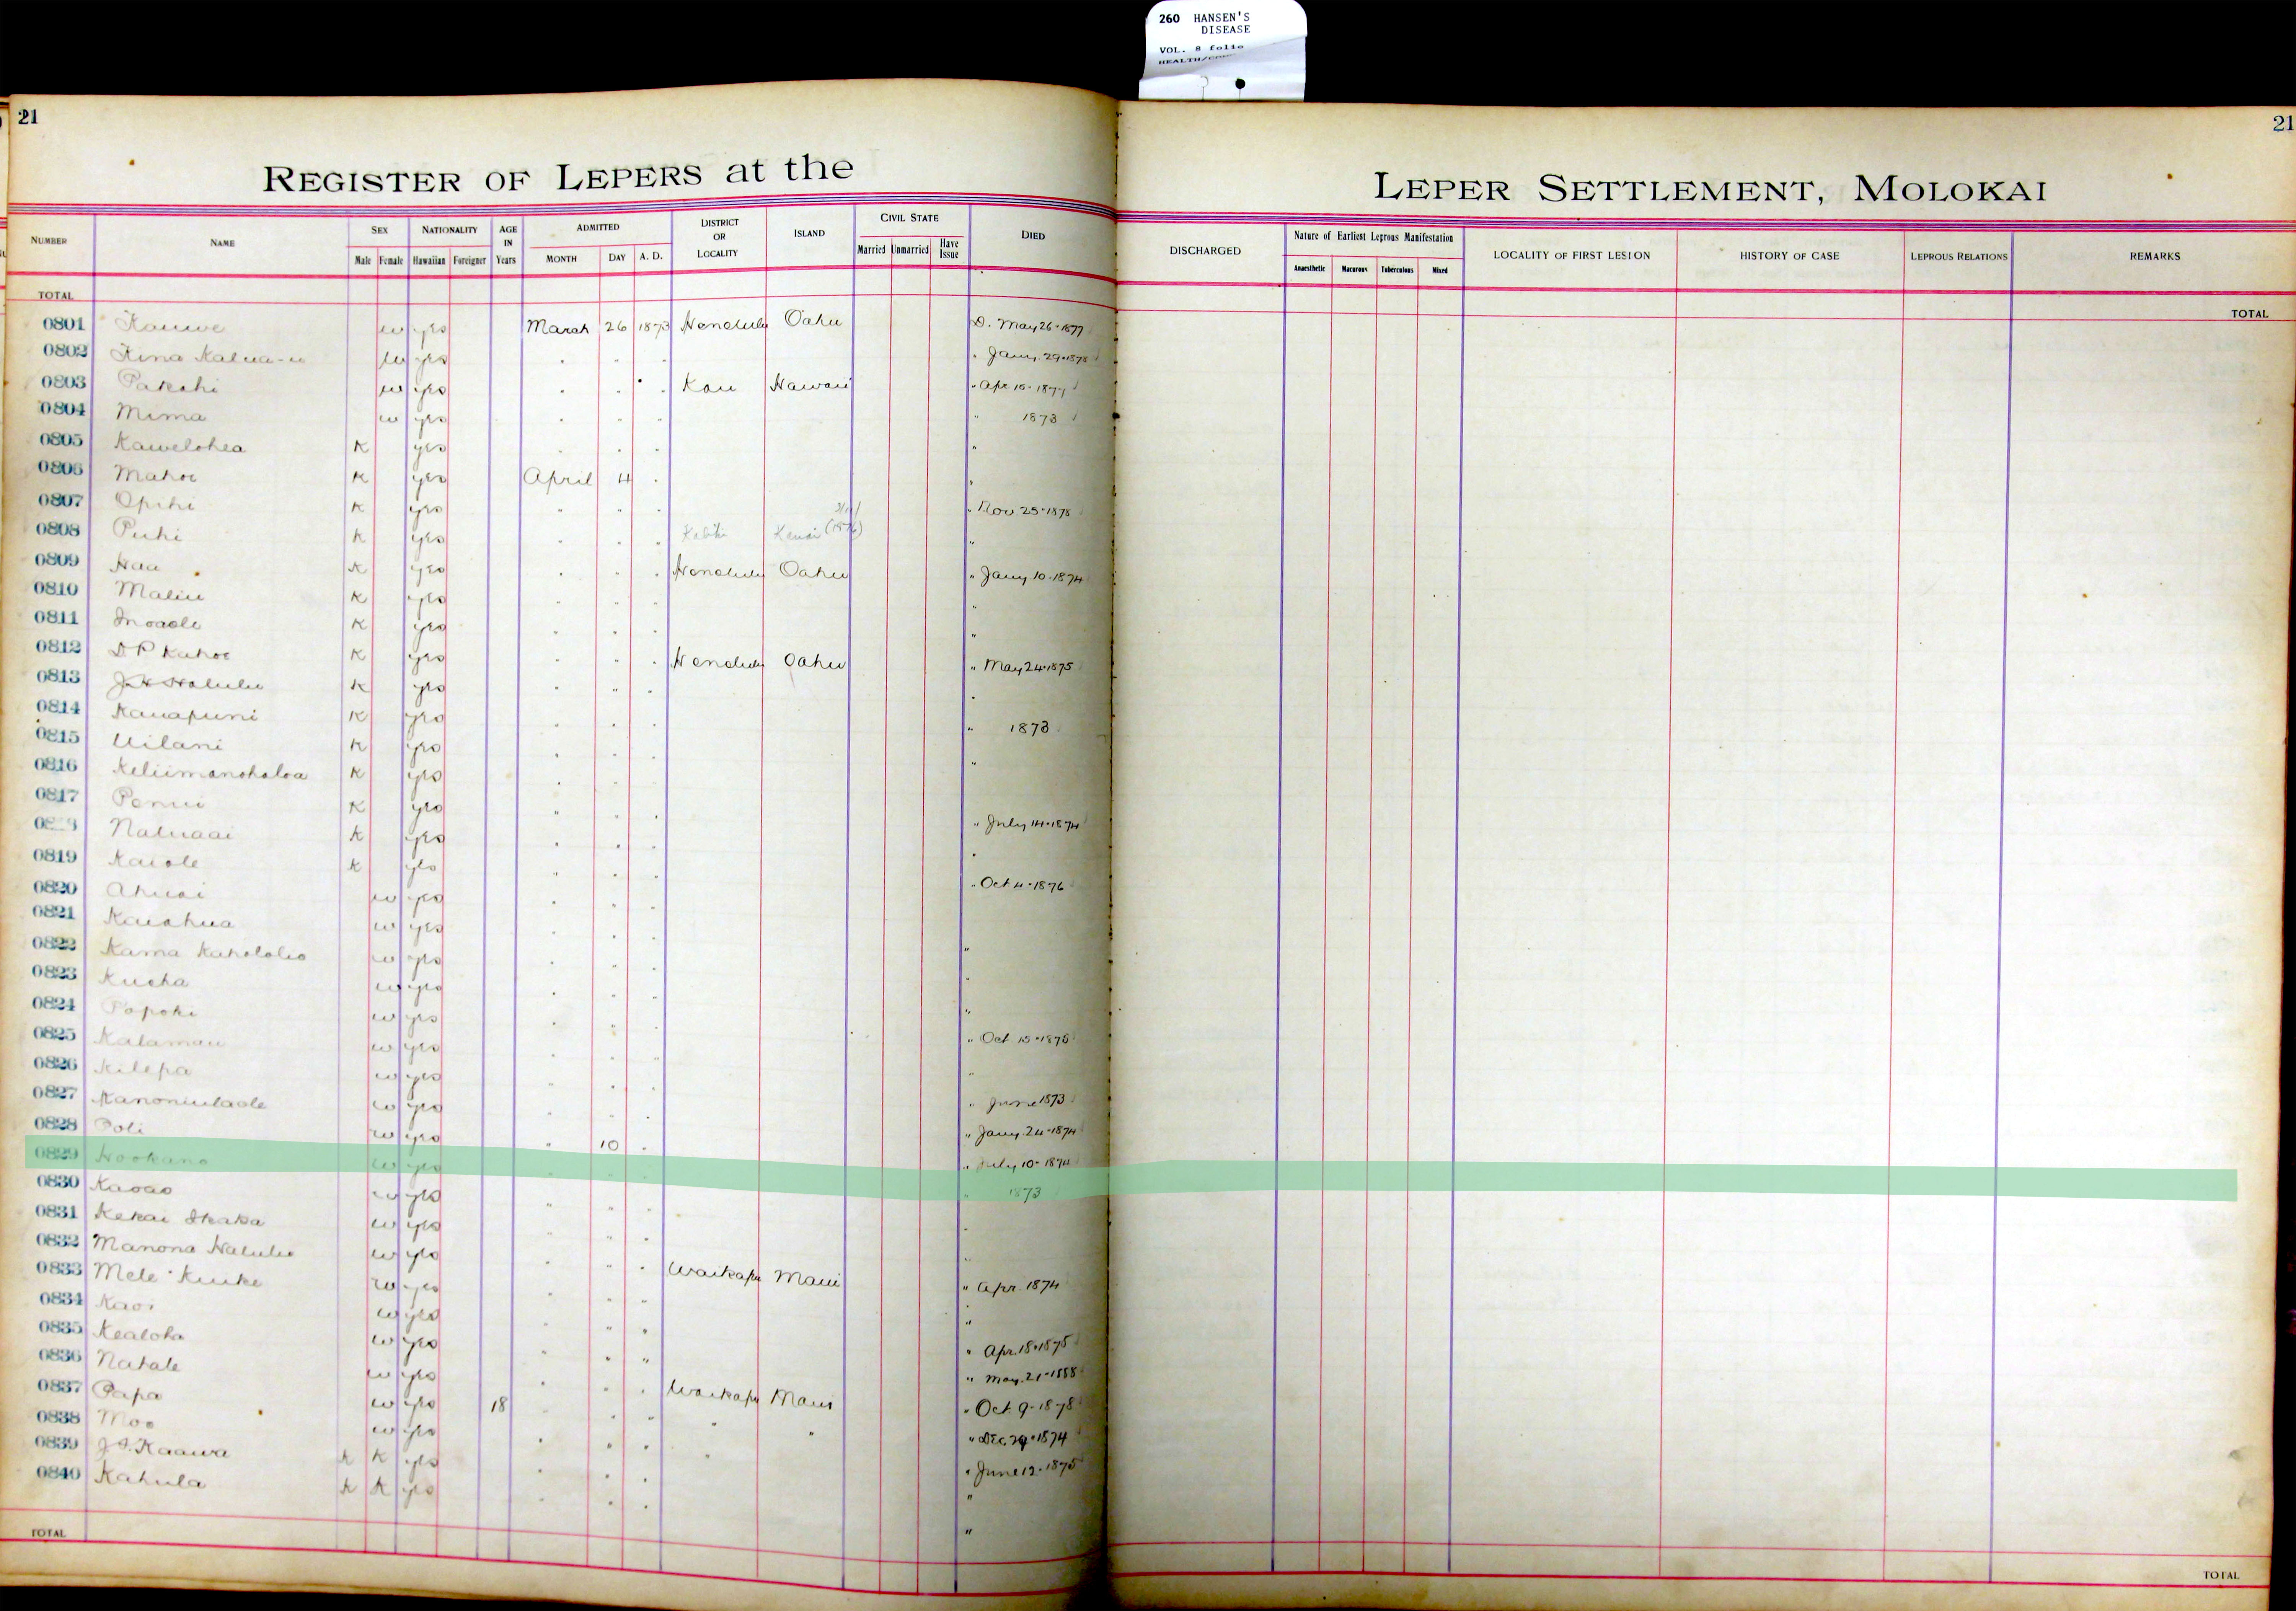 260 HANSEN'S
DISEASE
VOL. 8 folio
21
21
REGISTER OF LEPERS at the
LEPER SETTLEMENT, MOLOKAI
NUMBER NAME SEX NATIONALITY AGE IN Years ADMITTED DISTRICT OR LOCALITY ISLAND CIVIL STATE DIED
Male Female Hawaiian Foreigner MONTH DAY A. D. Married Unmarried Have Issue
DISCHARGED Nature of Earliest Leprous Manifestation LOCALITY OF FIRST LESION HISTORY OF CASE LEPROUS RELATIONS REMARKS
Anaesthetic Macurous Tuberculous Mixed
TOTAL
TOTAL
0801 Kauwe w yes March 26 1873 Honolulu Oahu D. May 26-1877
0802 w yes " " " " Jany. 29-1878
0803 Pakehi w yes " " " Kau Hawaii " Apr 16-1877
0804 Mima w yes " " " " 1873
0805 Kawelohea K yes " " " "
0806 Mahoe K yes April 4 " "
0807 Opihi K yes " " " Nov 25-1878
0808 Puhi K yes " " " Kauai (1876) "
0809 Hau K yes " " " Honolulu Oahu " Jany 10-1874
0810 Maliu K yes " " "
0811 K yes " " " "
0812 D P Kahoe K yes " " " Honolulu Oahu " May 24-1875
0813 K yes " " " "
0814 Kauapuni K yes " " " " 1873
0815 Uilani K yes " " " "
0816 Keliimanohaloa K yes " " "
0817 Penui K yes " " " " July 14-1874
Naluaai K yes " " " "
0819 Kaiole K yes " " " " Oct 4-1876
0820 Ahuai w yes " " "
0821 Kauahua w yes " " " "
0822 Kama Kahololio w yes " " " "
0823 Kueha w yes " " " "
0824 Popoki w yes " " " " Oct. 15-1875
0825 Kalamau w yes " " " "
0826 Kilepa w yes " " " " June 1873
0827 w yes " " " Jany. 24-1874
0828 Poli w yes " 10 " " July 10-1874
0829 Hookano w yes " 1873
0830 Kaoao w yes " " " "
0831 Kekai Ikaka w yes " " " "
0832 Manona Halulu w yes " " " Waikapu Maui " Apr. 1874
0833 Mele Kuike w yes " " " "
0834 Kaoi w yes " " " " Apr. 18-1875
0835 Kealoha w yes " " " " May. 21-1888
0836 Nahale w yes " " " Waikapu Maui " Oct. 9-1878
0837 Papa w yes 18 " " " " " " Dec. 29-1874
0838 Moo w yes " " " " " June 12-1875
0839 Kaawa K K yes " " " "
0840 Kahula K K yes " " " "
TOTAL
TOTAL